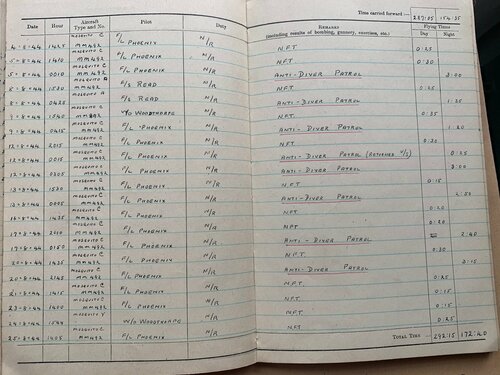 Time carried forward :— 287:05 154:05
Date Hour Aircraft Type and No. Pilot Duty REMARKS (including results of bombing, gunnery, exercises, etc.) Flying Times
Day Night
4-8-44 1425 MOSQUITO C MM492 F/L PHOENIX N/R N.F.T. 0:25
1410 MOSQUITO C MM492 F/L PHOENIX N/R N.F.T. 0:30
5-8-44 0010 MOSQUITO C MM492 F/L PHOENIX N/R ANTI-DIVER PATROL 3:00
1520 MOSQUITO A F/S READ N/R N.F.T. 0:25
0435 MOSQUITO A F/S READ N/R ANTI-DIVER PATROL 1:35
1540 MOSQUITO C MM492 W/O WOODTHORPE N/R N.F.T. 0:35
9-8-44 0415 MOSQUITO C MM492 F/L PHOENIX N/R ANTI-DIVER PATROL 1:20
12-8-44 2015 MOSQUITO C MM492 F/L PHOENIX N/R N.F.T. 0:30
0015 MOSQUITO C MM492 F/L PHOENIX N/R ANTI-DIVER PATROL (RETURNED U/S) 0:25
0305 MOSQUITO C MM492 F/L PHOENIX N/R ANTI-DIVER PATROL 3:00
13-8-44 1530 MOSQUITO C MM492 F/L PHOENIX N/R N.F.T. 0:15
0005 MOSQUITO C MM492 F/L PHOENIX N/R ANTI-DIVER PATROL 2:50
1435 MOSQUITO C MM492 F/L PHOENIX N/R N.F.T. 0:20
MOSQUITO C MM492 F/L PHOENIX N/R N.F.T. 0:20
0150 MOSQUITO C MM492 F/L PHOENIX N/R ANTI-DIVER PATROL 2:40
1435 MOSQUITO C MM492 F/L PHOENIX N/R N.F.T. 0:30
2145 MOSQUITO C MM492 F/L PHOENIX N/R ANTI-DIVER PATROL 3:15
21-8-44 1415 MOSQUITO C MM492 F/L PHOENIX N/R N.F.T. 0:25
1400 MOSQUITO C MM492 F/L PHOENIX N/R N.F.T. 0:15
24-8-44 MOSQUITO W/O WOODTHORPE N/R N.F.T. 0:15
25-8-44 1405 MOSQUITO C MM492 F/L PHOENIX N/R N.F.T. 0:25
TOTAL TIME 292:15 172:40